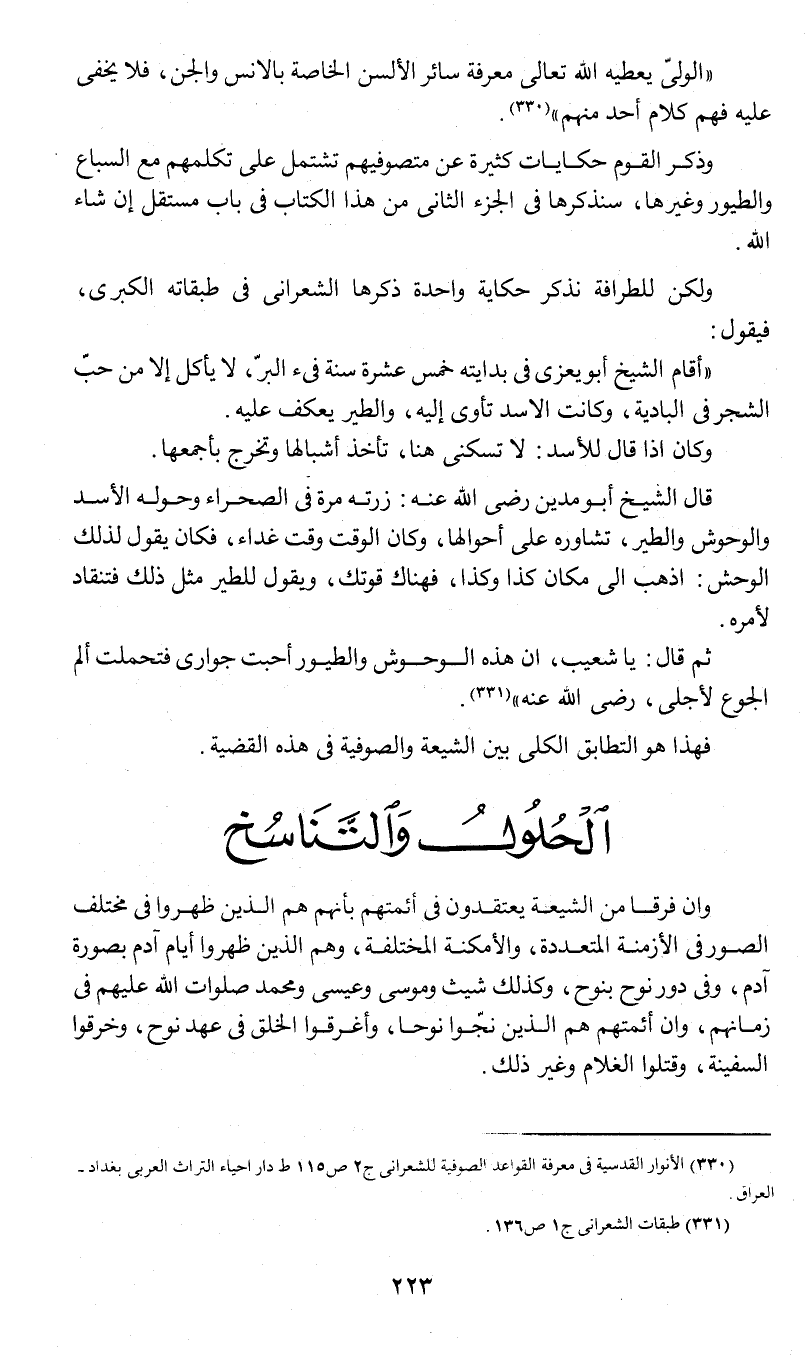 «الولىّ يعطيه الله تعالى معرفة سائر الألسن الخاصة بالانس والجن، فلا يخفى
عليه فهم كلام أحد منهم»(٣٣٠).
وذكر القوم حكايات كثيرة عن متصوفيهم تشتمل على تكلمهم مع السباع
والطيور وغيرها، سنذكرها فى الجزء الثانى من هذا الكتاب فى باب مستقل إن شاء
الله.
ولكن للطرافة نذكر حكاية واحدة ذكرها الشعرانى فى طبقاته الكبرى،
فيقول:
«أقام الشيخ أبو يعزى فى بدايته خمس عشرة سنة فىء البرّ، لا يأكل إلا من حبّ
الشجر فى البادية، وكانت الاسد تأوى إليه، والطير يعكف عليه.
وكان اذا قال للأسد: لا تسكنى هنا، تأخذ أشبالها وتخرج بأجمعها.
قال الشيخ أبو مدين رضى الله عنه: زرته مرة فى الصحراء وحوله الأسد
والوحوش والطير، تشاوره على أحوالها، وكان الوقت وقت غداء، فكان يقول لذلك
الوحش: اذهب الى مكان كذا وكذا، فهناك قوتك، ويقول للطير مثل ذلك فتنقاد
لأمره.
ثم قال: يا شعيب، ان هذه الوحوش والطيور أحبت جوارى فتحملت ألم
الجوع لأجلى، رضى الله عنه»(٣٣١).
فهذا هو التطابق الكلى بين الشيعة والصوفية فى هذه القضية.
اَلْحُلُولُ وَالتَّنَاسُخ
وان فرقا من الشيعة يعتقدون فى أئمتهم بأنهم هم الذين ظهروا فى مختلف
الصور فى الأزمنة المتعددة، والأمكنة المختلفة، وهم الذين ظهروا أيام آدم بصورة
آدم، وفى دور نوح بنوح، وكذلك شيث وموسى وعيسى ومحمد صلوات الله عليهم فى
زمانهم، وان أئمتهم هم الذين نجّوا نوحا، وأغرقوا الخلق فى عهد نوح، وخرقوا
السفينة، وقتلوا الغلام وغير ذلك.
(٣٣٠) الأنوار القدسية فى معرفة القواعد الصوفية للشعرانى ج٢ ص١١٥ ط دار احياء التراث العربى بغداد ـ
العراق.
(٣٣١) طبقات الشعرانى ج١ ص١٣٦.
٢٢٣